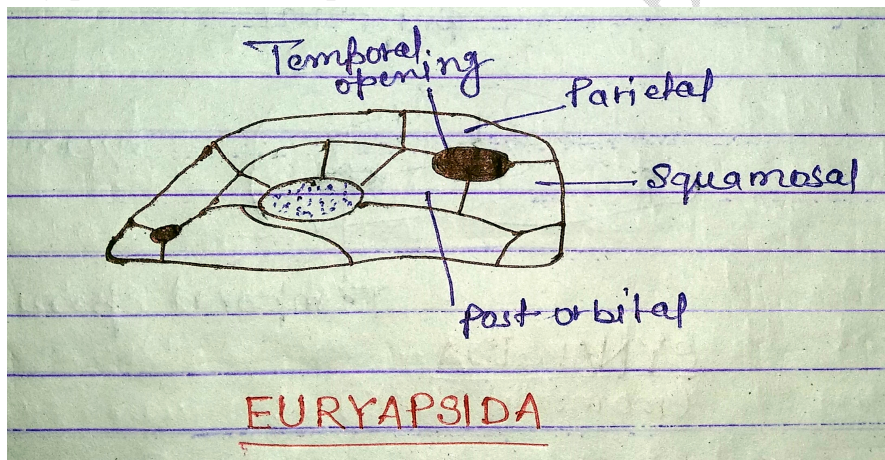 Temporal
opening
Parietal
Squamosal
Post orbital
EURYAPSIDA